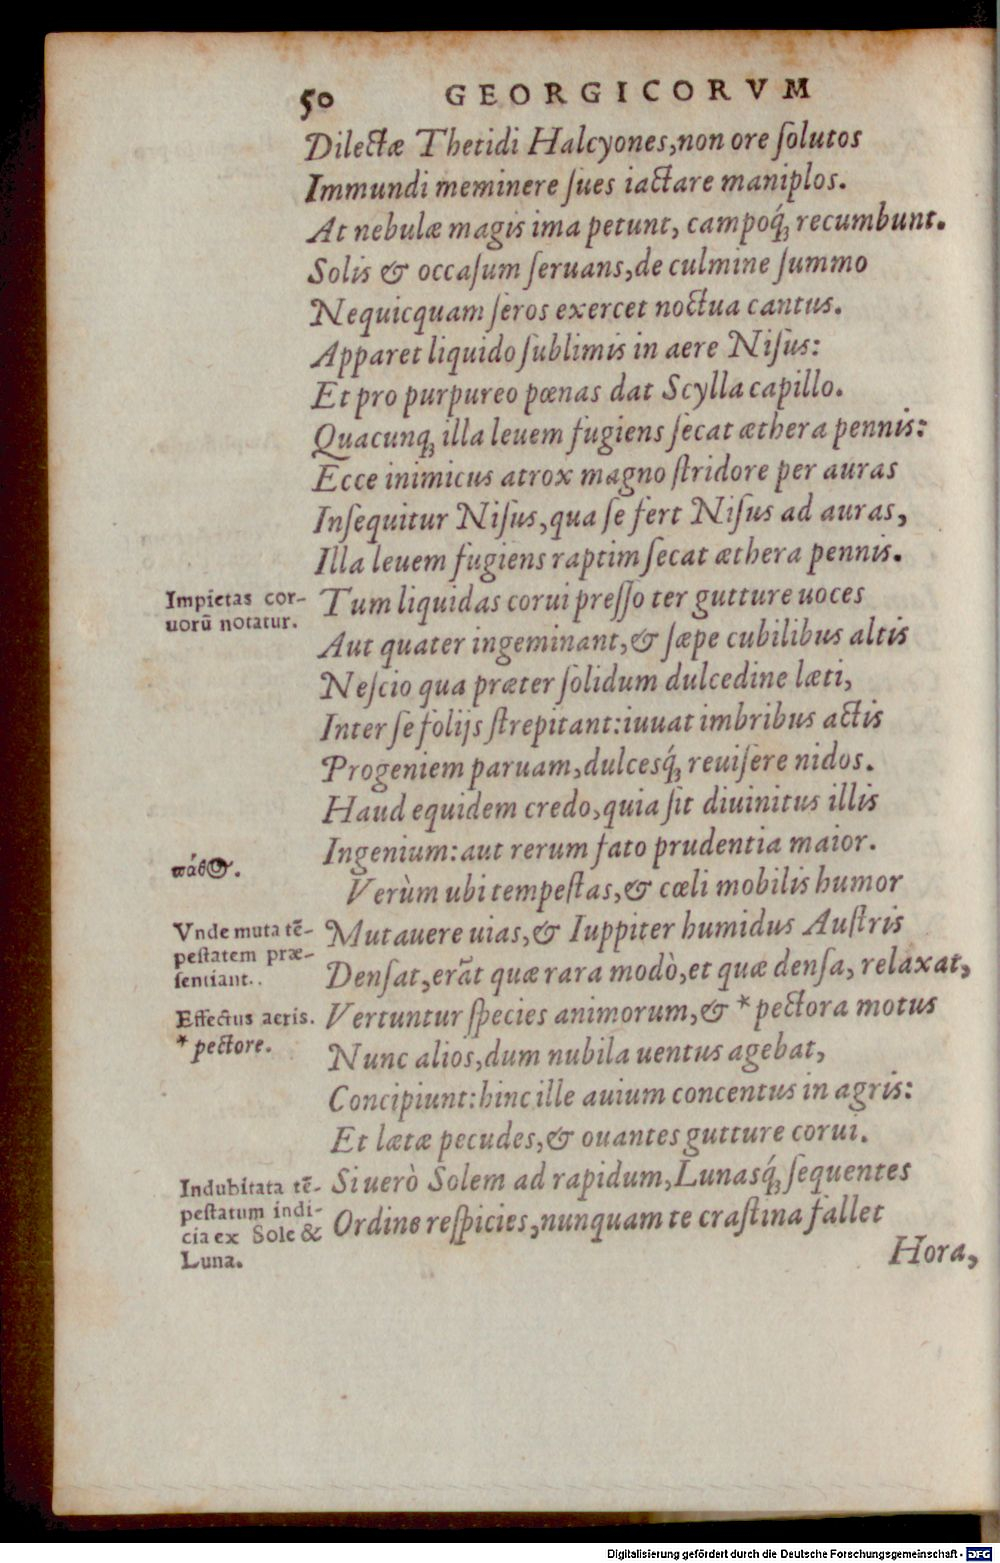 50 GEORGICORVM
Dilectæ Thetidi Halcyones,non ore ſolutos
Immundi meminere ſues iactare maniplos.
At nebulæ magis ima petunt, campoq́ꝫ recumbunt.
Solis & occaſum ſeruans,de culmine ſummo
Nequicquam ſeros exercet noctua cantus.
Apparet liquido ſublimis in aere Niſus:
Et pro purpureo pœnas dat Scylla capillo.
Quacunqꝫ illa leuem fugiens ſecat æthera pennis:
Ecce inimicus atrox magno ſtridore per auras
Inſequitur Niſus,qua ſe fert Niſus ad auras,
Illa leuem fugiens raptim ſecat æthera pennis.
Impietas cor-
uorū notatur.
Tum liquidas corui preſſo ter gutture uoces
Aut quater ingeminant,& ſæpe cubilibus altis
Neſcio qua præter ſolidum dulcedine læti,
Inter ſe folijs ſtrepitant:iuuat imbribus actis
Progeniem paruam,dulcesq́ꝫ reuiſere nidos.
Haud equidem credo,quia ſit diuinitus illis
Ingenium:aut rerum fato prudentia maior.
πάθος.
Verùm ubi tempeſtas,& cœli mobilis humor
Vnde muta tē-
peſtatem præ-
ſentiant..
Mutauere uias,& Iuppiter humidus Auſtris
Denſat,erāt quæ rara modò,et quæ denſa, relaxat,
Effectus aeris.
* pectore.
Vertuntur ſpecies animorum,& * pectora motus
Nunc alios,dum nubila uentus agebat,
Concipiunt:hinc ille auium concentus in agris:
Et lætæ pecudes,& ouantes gutture corui.
Indubitata tē-
peſtatum indi-
cia ex Sole &
Luna.
Si uerò Solem ad rapidum,Lunasq́ꝫ ſequentes
Ordine reſpicies,nunquam te craſtina fallet
Hora,
Digitalisierung gefördert durch die Deutsche Forschungsgemeinschaft - DFG